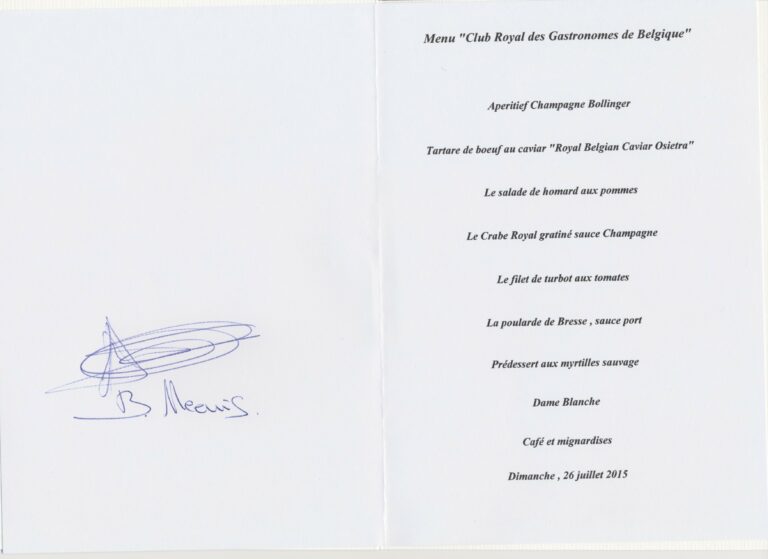 B. Meeuis.
Menu "Club Royal des Gastronomes de Belgique"
Aperitief Champagne Bollinger
Tartare de boeuf au caviar "Royal Belgian Caviar Osietra"
Le salade de homard aux pommes
Le Crabe Royal gratiné sauce Champagne
Le filet de turbot aux tomates
La poularde de Bresse , sauce port
Prédessert aux myrtilles sauvage
Dame Blanche
Café et mignardises
Dimanche , 26 juillet 2015